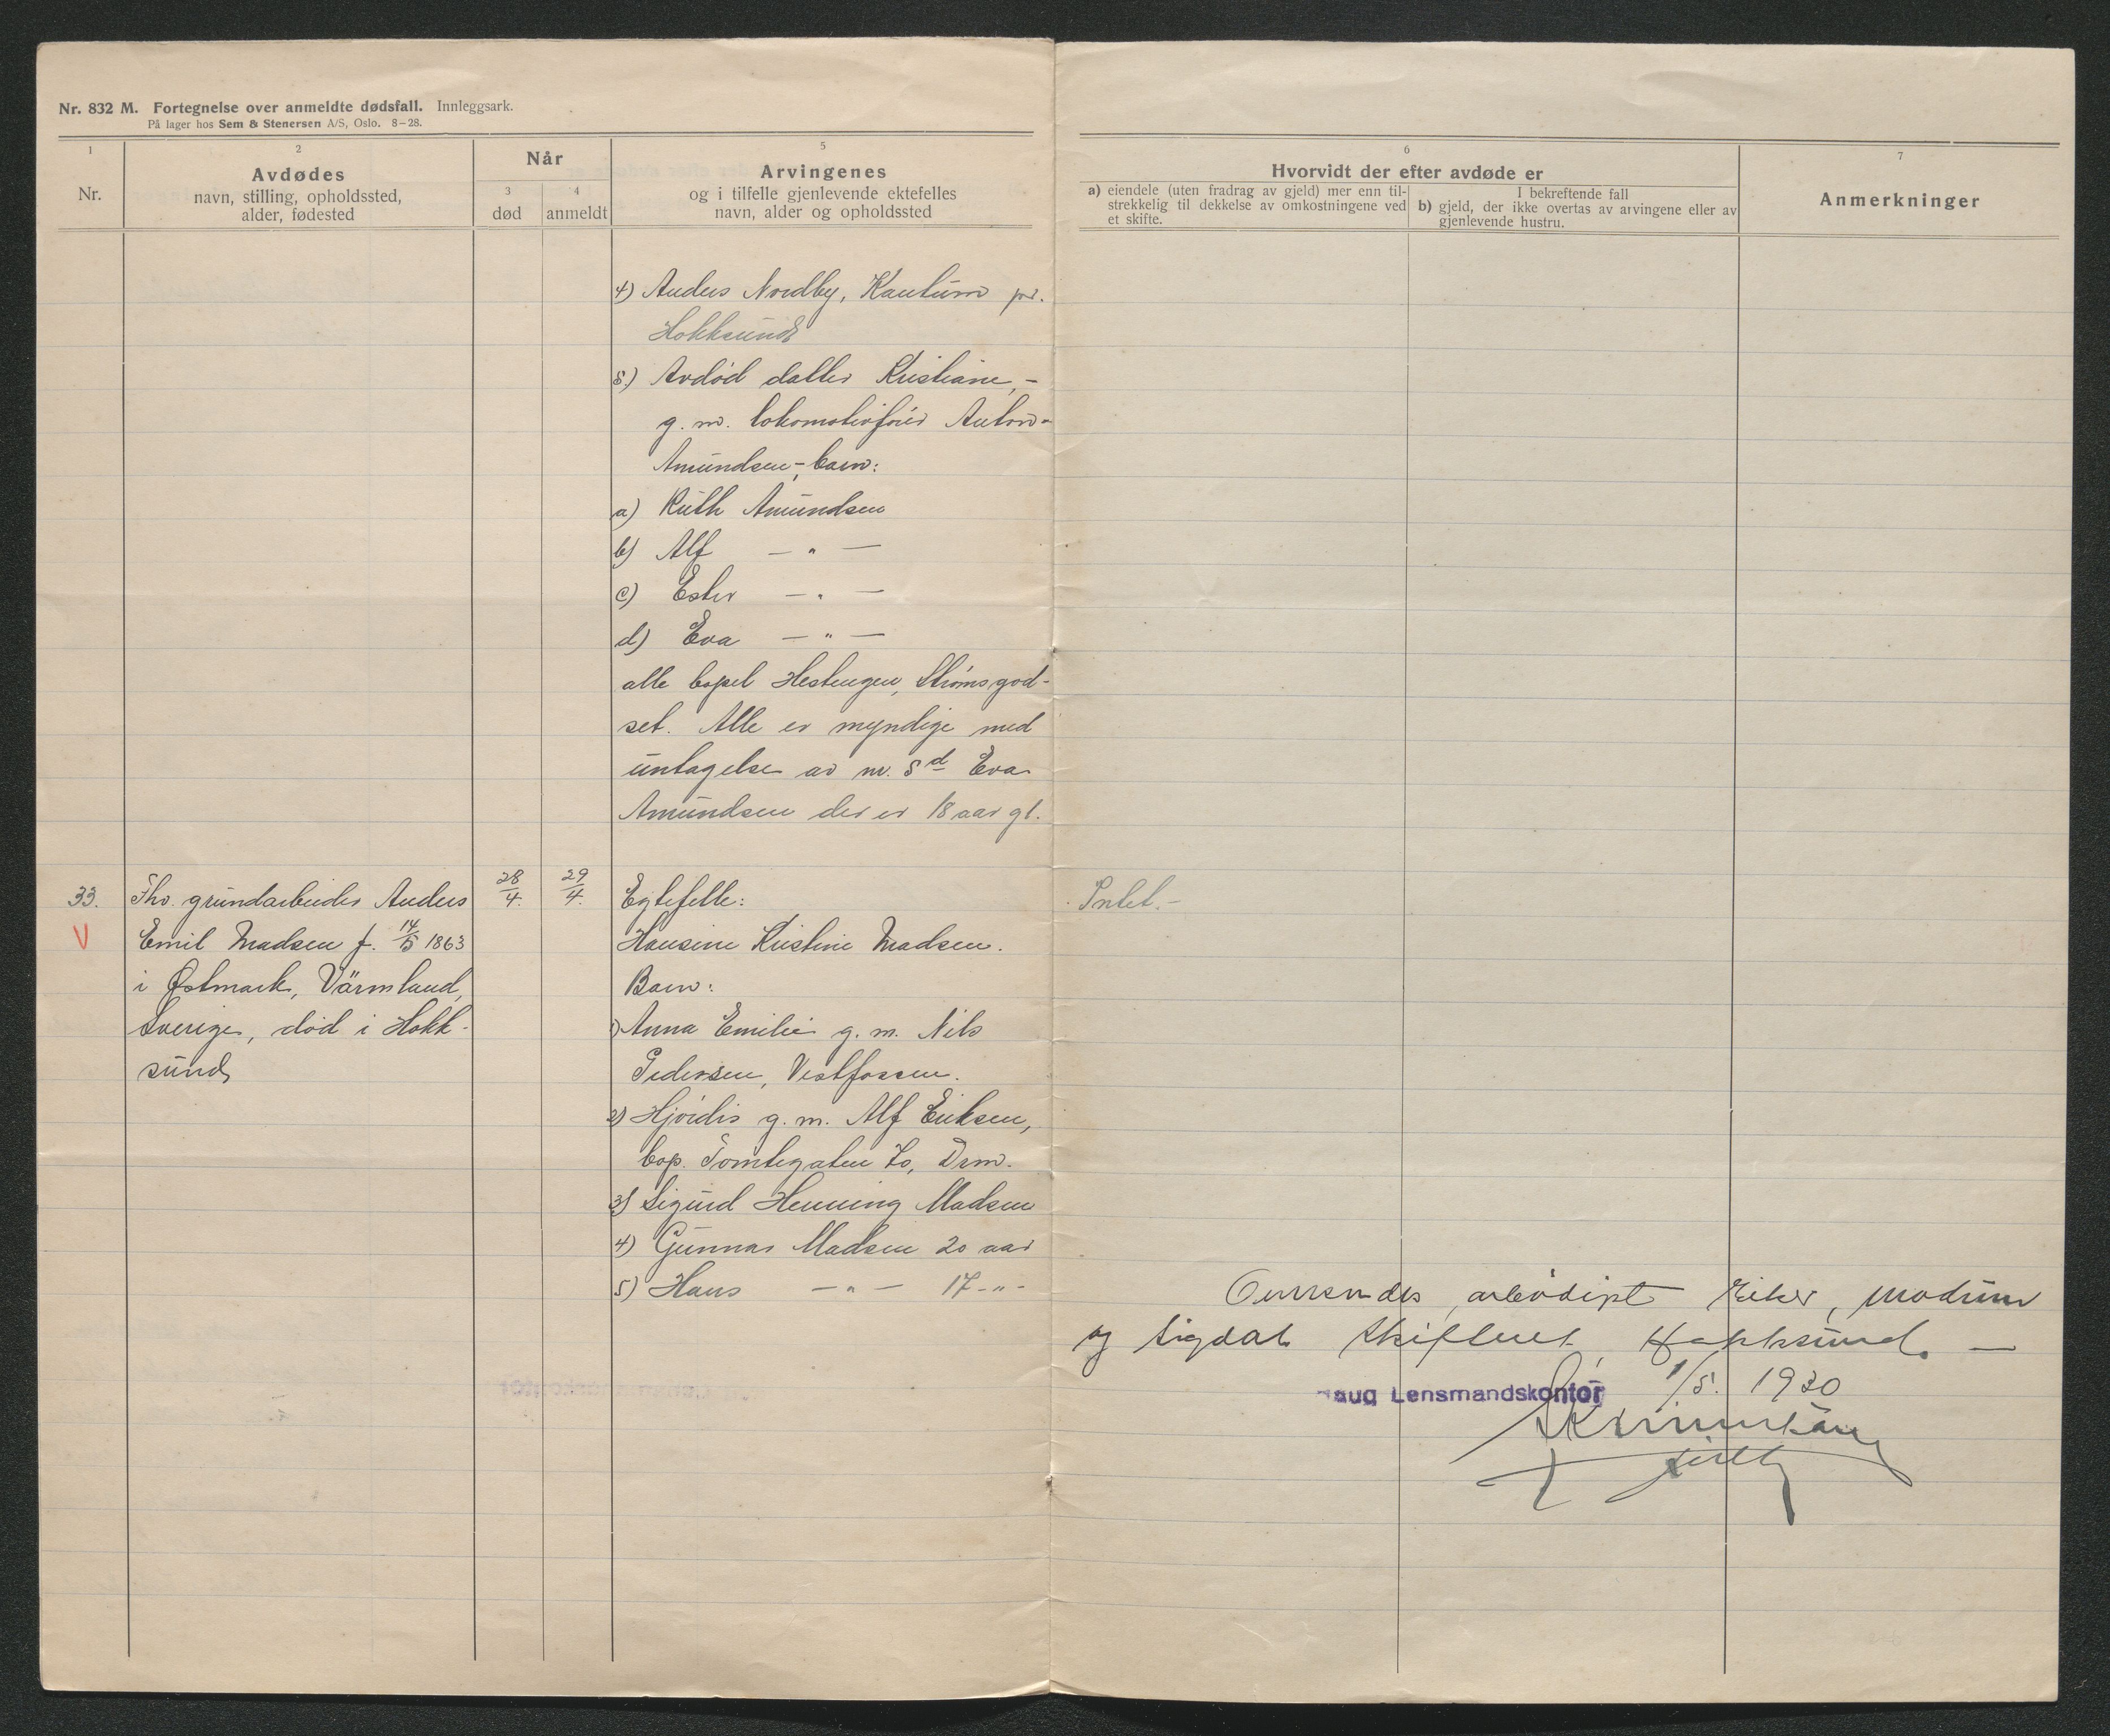 Nr. 832 M. Fortegnelse over anmeldte dødsfall. Innleggsark.
På lager hos Sem & Stenersen A/S, Oslo. 8—28.
1
Nr.
2
Avdødes
navn, stilling, opholdssted,
alder, fødested
Når
3
død
4
anmeldt
5
Arvingenes
og i tilfelle gjenlevende ektefelles
navn, alder og opholdssted
6
Hvorvidt der efter avdøde er
a) eiendele (uten fradrag av gjeld) mer enn til-
strekkelig til dekkelse av omkostningene ved
et skifte.
I bekreftende fall
b) gjeld, der ikke overtas av arvingene eller av
gjenlevende hustru.
7
Anmerkninger
4) Anders Nordby, Kantum pr.
Hokksund
5.) Avdød datter Kristiane, -
g. m. lokomotivfører Anton -
Amundsen -, barn:
a) Ruth Amundsen
b) Alf — " —
c) Ester — " —
d) Eva — " —
alle bopel Hestengen, Strømsgod-
set. Alle er myndige med
untagelse av nr. 5 d Eva
Amundsen der er 18 aar gl.
33.
V
Fhv. grundarbeider Anders
Emil Madsen f. 14/5 1863
i Østmark, Värmland,
Sverige, død i Hokk-
sund
28/4.
29/4.
Egtefelle:
Hansine Kristine Madsen.
Barn:
1) Anna Emilie g. m. Nils
Pedersen, Vestfossen.
2) Hjördis g. m. Alf Eriksen,
bop. Tomtegaten 70, Drm.
3) Sigurd Henning Madsen
4) Gunnar Madsen 20 aar
5) Hans — " — 17 - " -
Intet. -
Oversendes ærbødigst Eiker, Modum
og Sigdal Skifterett, Hokksund. —
aug Lensmandskontor 1/5. 1930